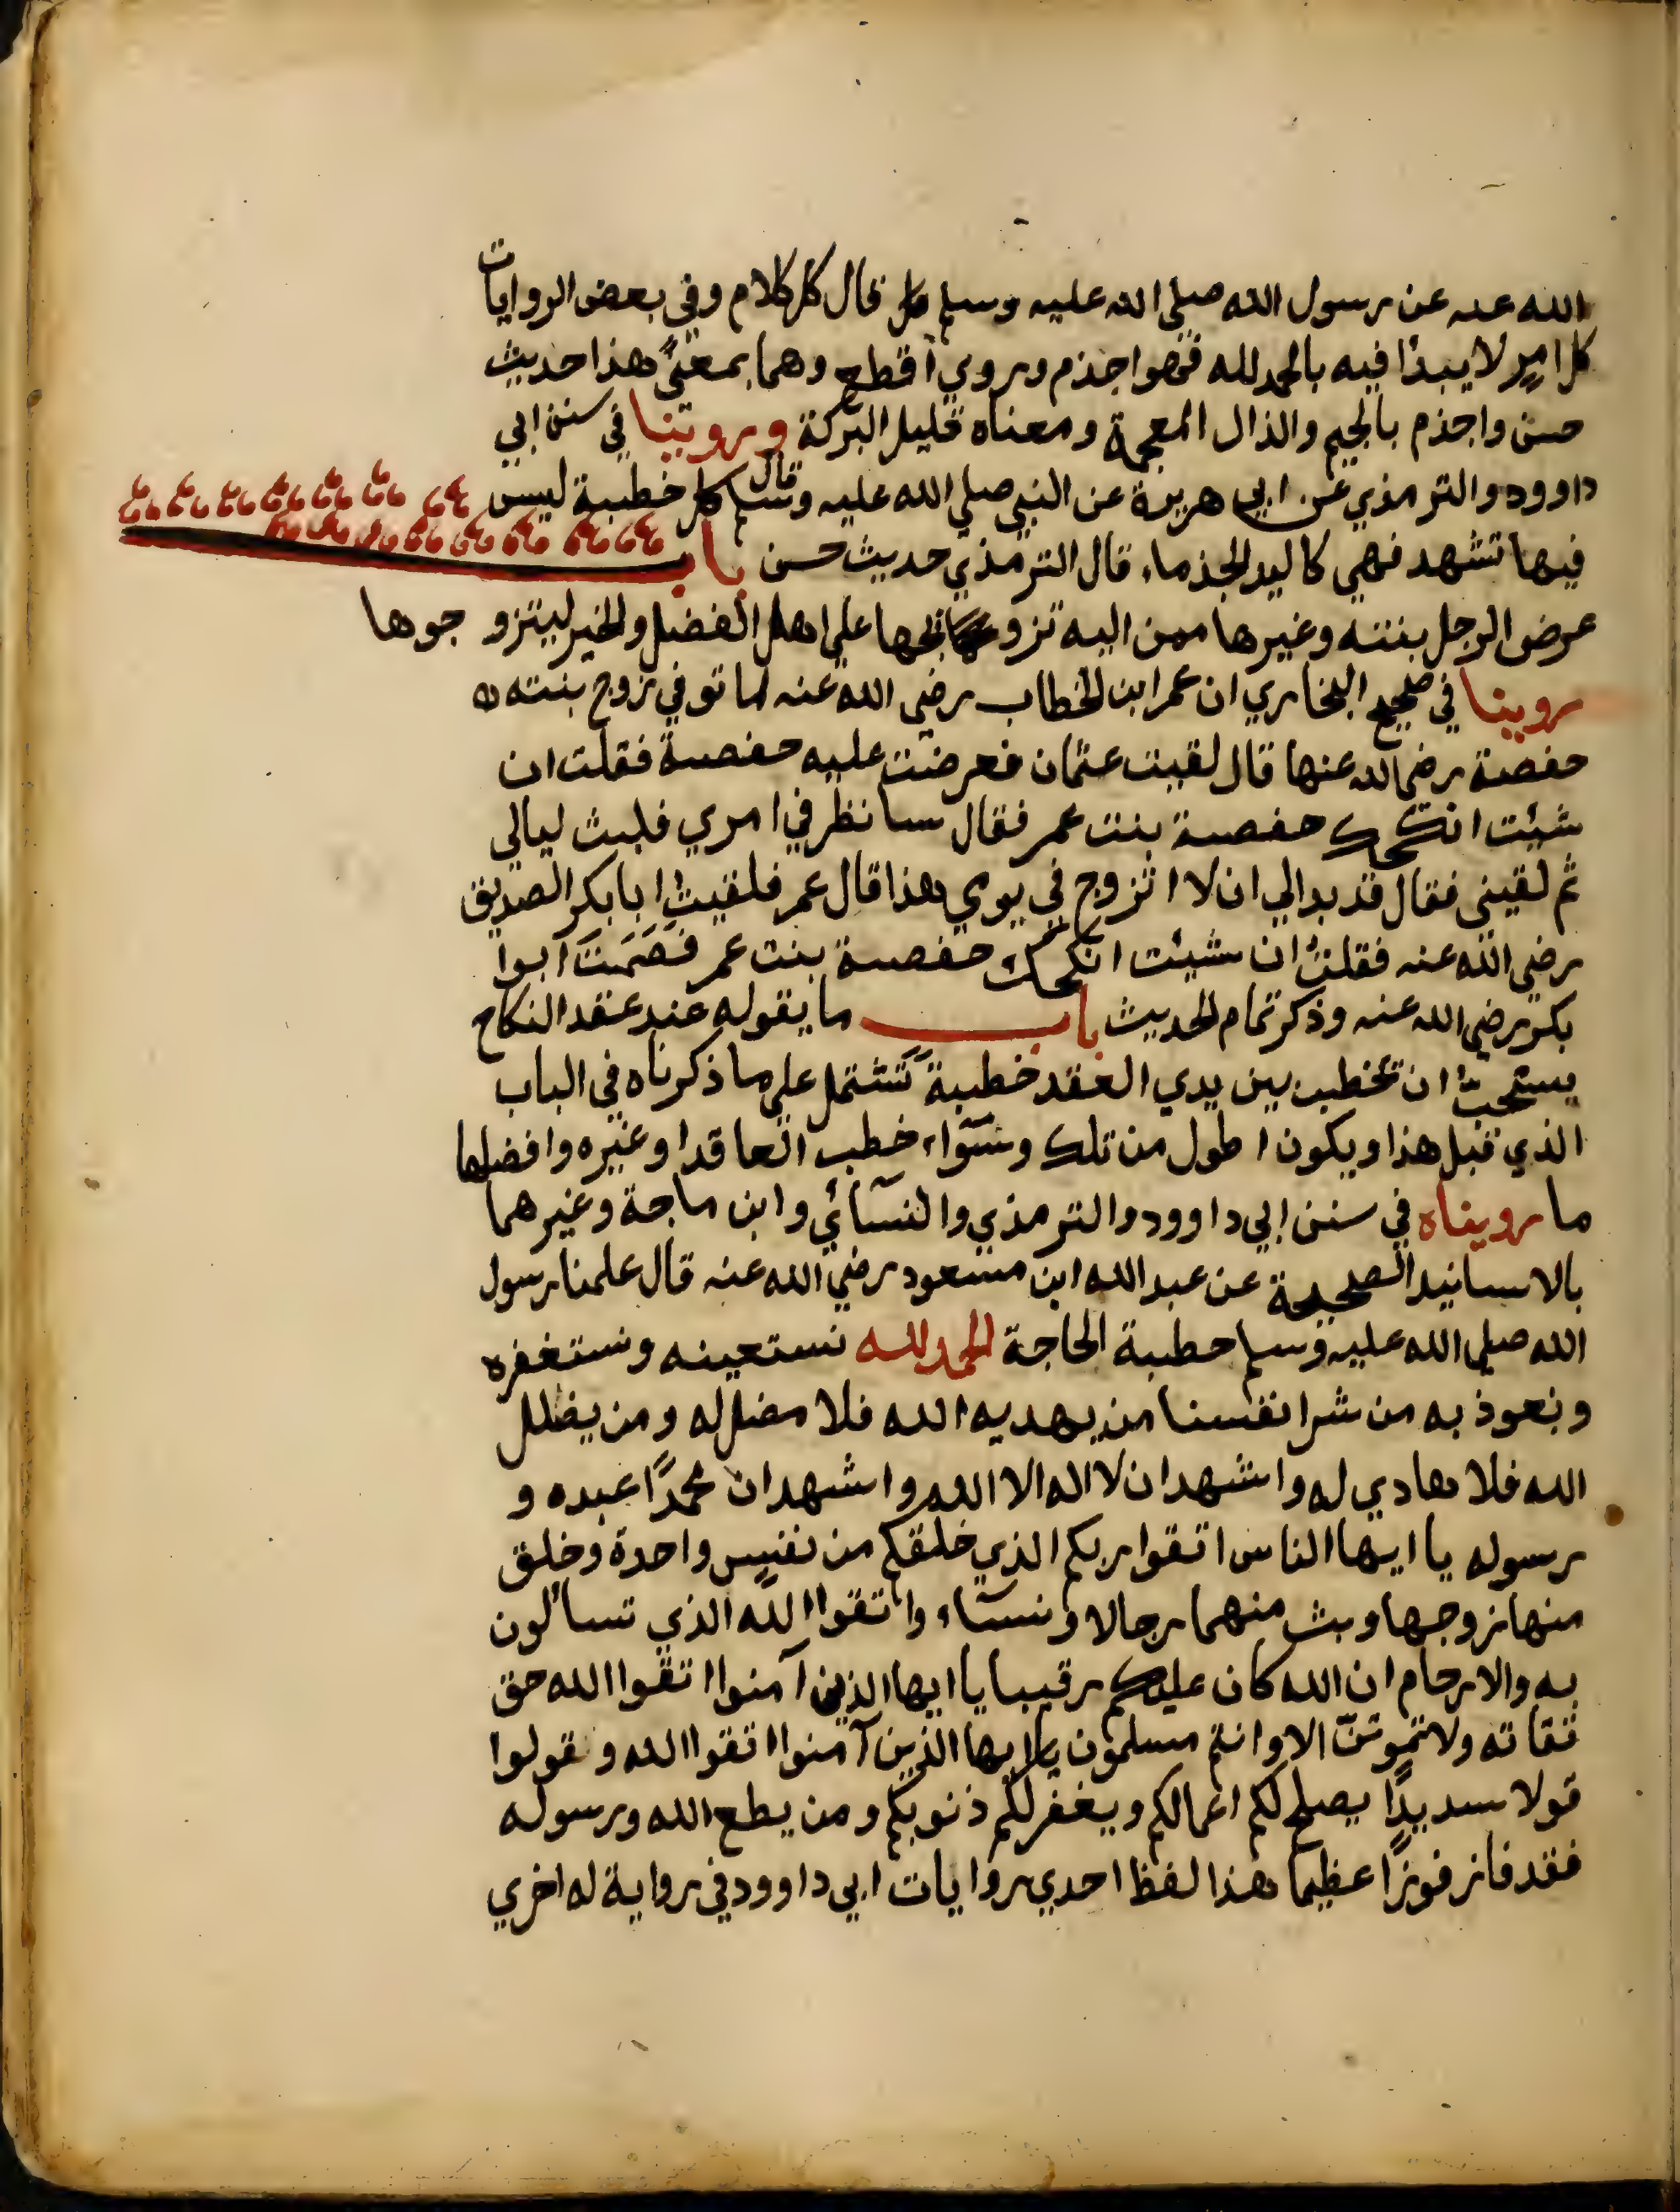 الله عنه عن رسول الله صلي الله عليه وسلم قال كل كلام وفي بعض الروايات
كل امرٍ لا يبدأ فيه بالحمد لله فهو اجذم وروي اقطع وهما بمعنيً هذا حديث
حسن واجذم بالجيم والذال المعجمة ومعناه قليل البركة وروينا في سنن ابي
داوود والترمذي عن ابي هريرة عن النبي صلي الله عليه وسلم قال كل خطبة ليس
فيها تشهد فهي كاليد الجذماء قال الترمذي حديث حسن باب
عرض الرجل بنته وغيرها ممن اليه تزويجها علي اهل الفضل والخير ليتزو جوها
روينا في صحيح البخاري ان عمر ابن الخطاب رضي الله عنه لما توفي زوج بنته
حفصة رضي الله عنها قال لقيت عثمان فعرضت عليه حفصة فقلت ان
شيئت انكحك حفصة بنت عمر فقال سانظر في امري فلبث ليالي
ثم لقيني فقال قد بدالي ان لا اتزوج في يومي هذا قال عمر فلقيت ابا بكر الصديق
رضي الله عنه فقلت ان شيئت انكحك حفصة بنت عمر فَصَمَتَ ابوا
بكر رضي الله عنه وذكر تمام الحديث باب ما يقوله عند عقد النكاح
يستحب ان يخطب بين يدي العقد خطبةً تشتمل علي ما ذكرناه في الباب
الذي قبل هذا ويكون اطول من تلك وسوآء خطب العاقد او غيره وافضلها
ما رويناه في سنن ابي داوود والترمذي والنسآئي وابن ماجة وغيرهما
بالاسانيد الصحيحة عن عبد الله ابن مسعود رضي الله عنه قال علمنا رسول
الله صلي الله عليه وسلم خطبة الحاجة الحمد لله نستعينه ونستغفره
ونعوذ به من شر انفسنا من يهديه الله فلا مضل له ومن يضلل
الله فلا هادي له واشهد ان لا اله الا الله واشهد ان محمدًا عبده و
رسوله يا ايها الناس اتقوا ربكم الذي خلقكم من نفسٍ واحدة وخلق
منها زوجها وبث منهما رجالا ونسآء واتقوا الله الذي تسألون
به والارحام ان الله كان عليكم رقيبا يا ايها الذين آمنوا اتقوا الله حق
تقاته ولا تموتنّ الا وانتم مسلمون يا ايها الذين آمنوا اتقوا الله وقولوا
قولا سديدًا يصلح لكم اعمالكم ويغفر لكم ذنوبكم ومن يطع الله ورسوله
فقد فاز فوزًا عظيما هذا لفظ احدي روايات ابي داوود في رواية له اخري